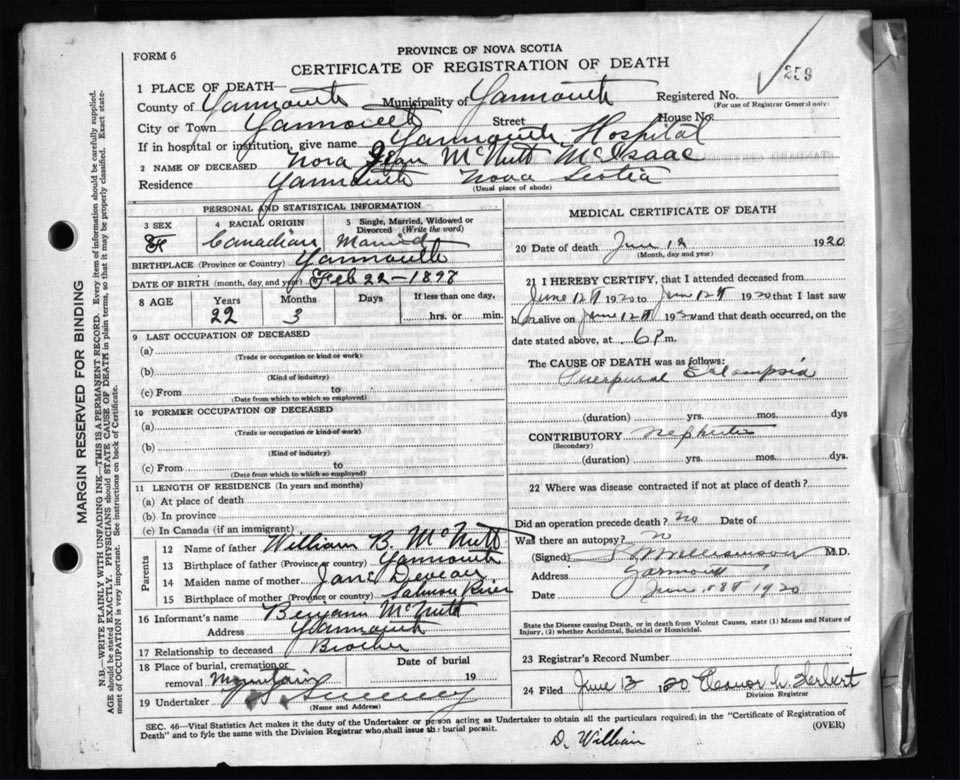 FORM 6
PROVINCE OF NOVA SCOTIA
CERTIFICATE OF REGISTRATION OF DEATH
259
1 PLACE OF DEATH—
County of Yarmouth Municipality of Yarmouth Registered No.
(For use of Registrar General only)
City or Town Yarmouth Street House No.
If in hospital or institution, give name Yarmouth Hospital
2 NAME OF DECEASED Nora Jean McNutt McIsaac
Residence Yarmouth Nova Scotia
(Usual place of abode)
PERSONAL AND STATISTICAL INFORMATION
3 SEX 4 RACIAL ORIGIN 5 Single, Married, Widowed or Divorced (Write the word)
F Canadian Married
BIRTHPLACE (Province or Country) Yarmouth
DATE OF BIRTH (month, day, and year) Feb 22-1898
8 AGE Years Months Days If less than one day,
22 3 hrs. or min.
9 LAST OCCUPATION OF DECEASED
(a)
(Trade or occupation or kind of work)
(b)
(Kind of industry)
(c) From to
(Date from which to which so employed)
10 FORMER OCCUPATION OF DECEASED
(a)
(Trade or occupation or kind of work)
(b)
(Kind of industry)
(c) From to
(Date from which to which so employed)
11 LENGTH OF RESIDENCE (In years and months)
(a) At place of death
(b) In province
(c) In Canada (if an immigrant)
Parents
12 Name of father William B. McNutt
13 Birthplace of father (Province or country) Yarmouth
14 Maiden name of mother Jane Deveau
15 Birthplace of mother (Province or country) Salmon River
16 Informant's name Benjamin McNutt
Address Yarmouth
17 Relationship to deceased Brother
18 Place of burial, cremation or removal Mountain Date of burial 19
19 Undertaker Sweeney
(Name and Address)
MEDICAL CERTIFICATE OF DEATH
20 Date of death June 12 1920
(Month, day and year)
21 I HEREBY CERTIFY, that I attended deceased from
June 12th 1920 to June 12th 1920 that I last saw
her alive on June 12th 1920 and that death occurred, on the
date stated above, at 6 P m.
The CAUSE OF DEATH was as follows:
Puerpural Eclampsia
(duration) yrs. mos. dys
CONTRIBUTORY nephritis
(Secondary)
(duration) yrs. mos. dys.
22 Where was disease contracted if not at place of death?
Did an operation precede death? no Date of
Was there an autopsy? no
(Signed) Williamson M.D.
Address Yarmouth
Date June 1920
State the Disease causing Death, or in death from Violent Causes, state (1) Means and Nature of
Injury, (2) whether Accidental, Suicidal or Homicidal.
23 Registrar's Record Number
24 Filed June 1920 Eleanor h. Herbert
Division Registrar
SEC. 46—Vital Statistics Act makes it the duty of the Undertaker or person acting as Undertaker to obtain all the particulars required, in the "Certificate of Registration of
Death" and to fyle the same with the Division Registrar who shall issue the burial permit. (OVER)
D. William
MARGIN RESERVED FOR BINDING
N.B.—WRITE PLAINLY WITH UNFADING INK—THIS IS A PERMANENT RECORD. Every item of information should be carefully supplied.
AGE should be stated EXACTLY. PHYSICIANS should STATE CAUSE OF DEATH in plain terms, so that it may be properly classified. Exact statement
of OCCUPATION is very important. See instructions on back of Certificate.